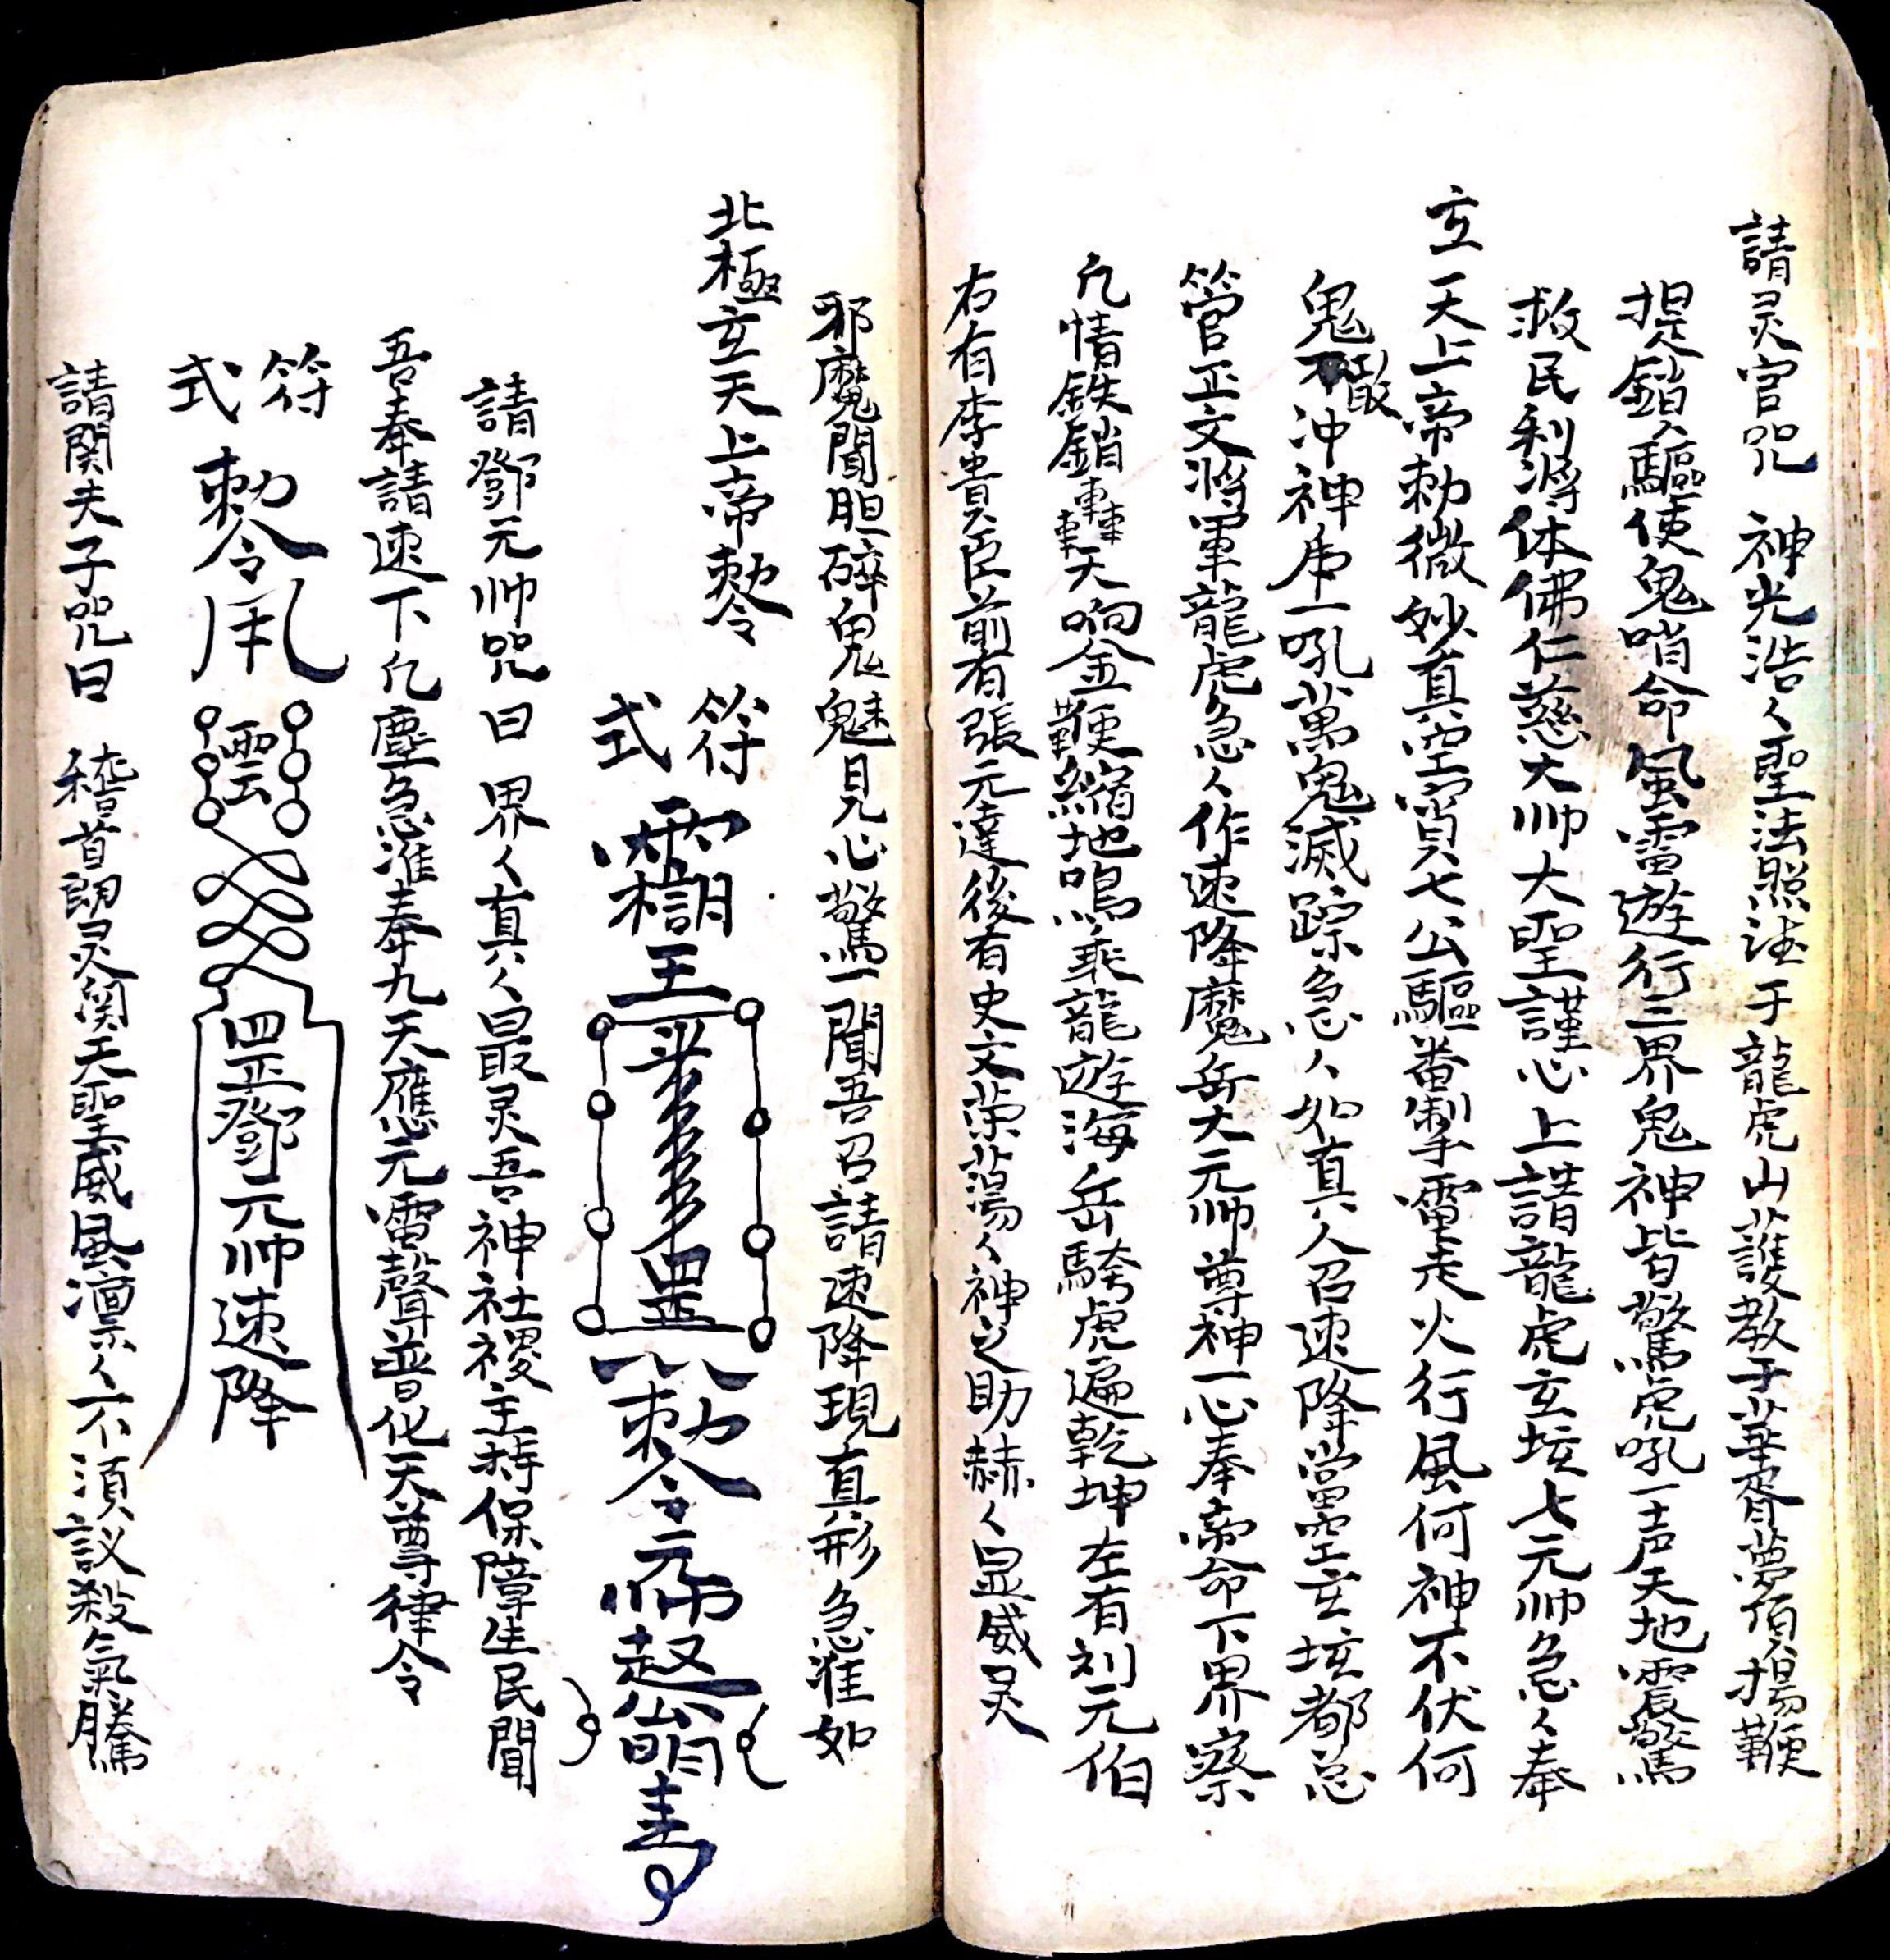 請灵官咒　神光浩々聖法照法于龍虎山護教于華胥夢頂揚鞭
提鎖々驅使鬼哨命風雷遊行三界鬼神皆驚虎吼一声天地震驚
救民利濟体佛仁慈大帅大聖謹心上請龍虎玄坛七元帅急々奉
玄天上帝勅微妙真空實七公驅番掣雷走火行風何神不伏何
鬼不敢冲神虎一吼萬鬼滅踪急々如真人召速降當空玄坛都总
管正文將軍龍虎急々作速降魔岳大元帅尊神一心奉帝命下界察
凡情鉄鎖轟轟天响金鞭縮地鳴乘龍遊海岳騎虎遍乾坤左有刘元伯
右有李貴臣前有張元達後有史文荣蕩々神之助赫々显威灵
邪魔聞胆碎鬼魅見心驚一聞吾召請速降現真形急准如
北極玄天上帝勅令
符式
王
罡
勅令元帅
請鄧元帅咒曰　界々真人最灵吾神社稷主持保障生民聞
吾奉請速下凡塵急准奉九天應元雷聲普化天尊律令
符式　勅令　雲　罡鄧元帅速降
請関夫子咒曰　稽首朗灵関天聖威風凛々不須議殺氣騰